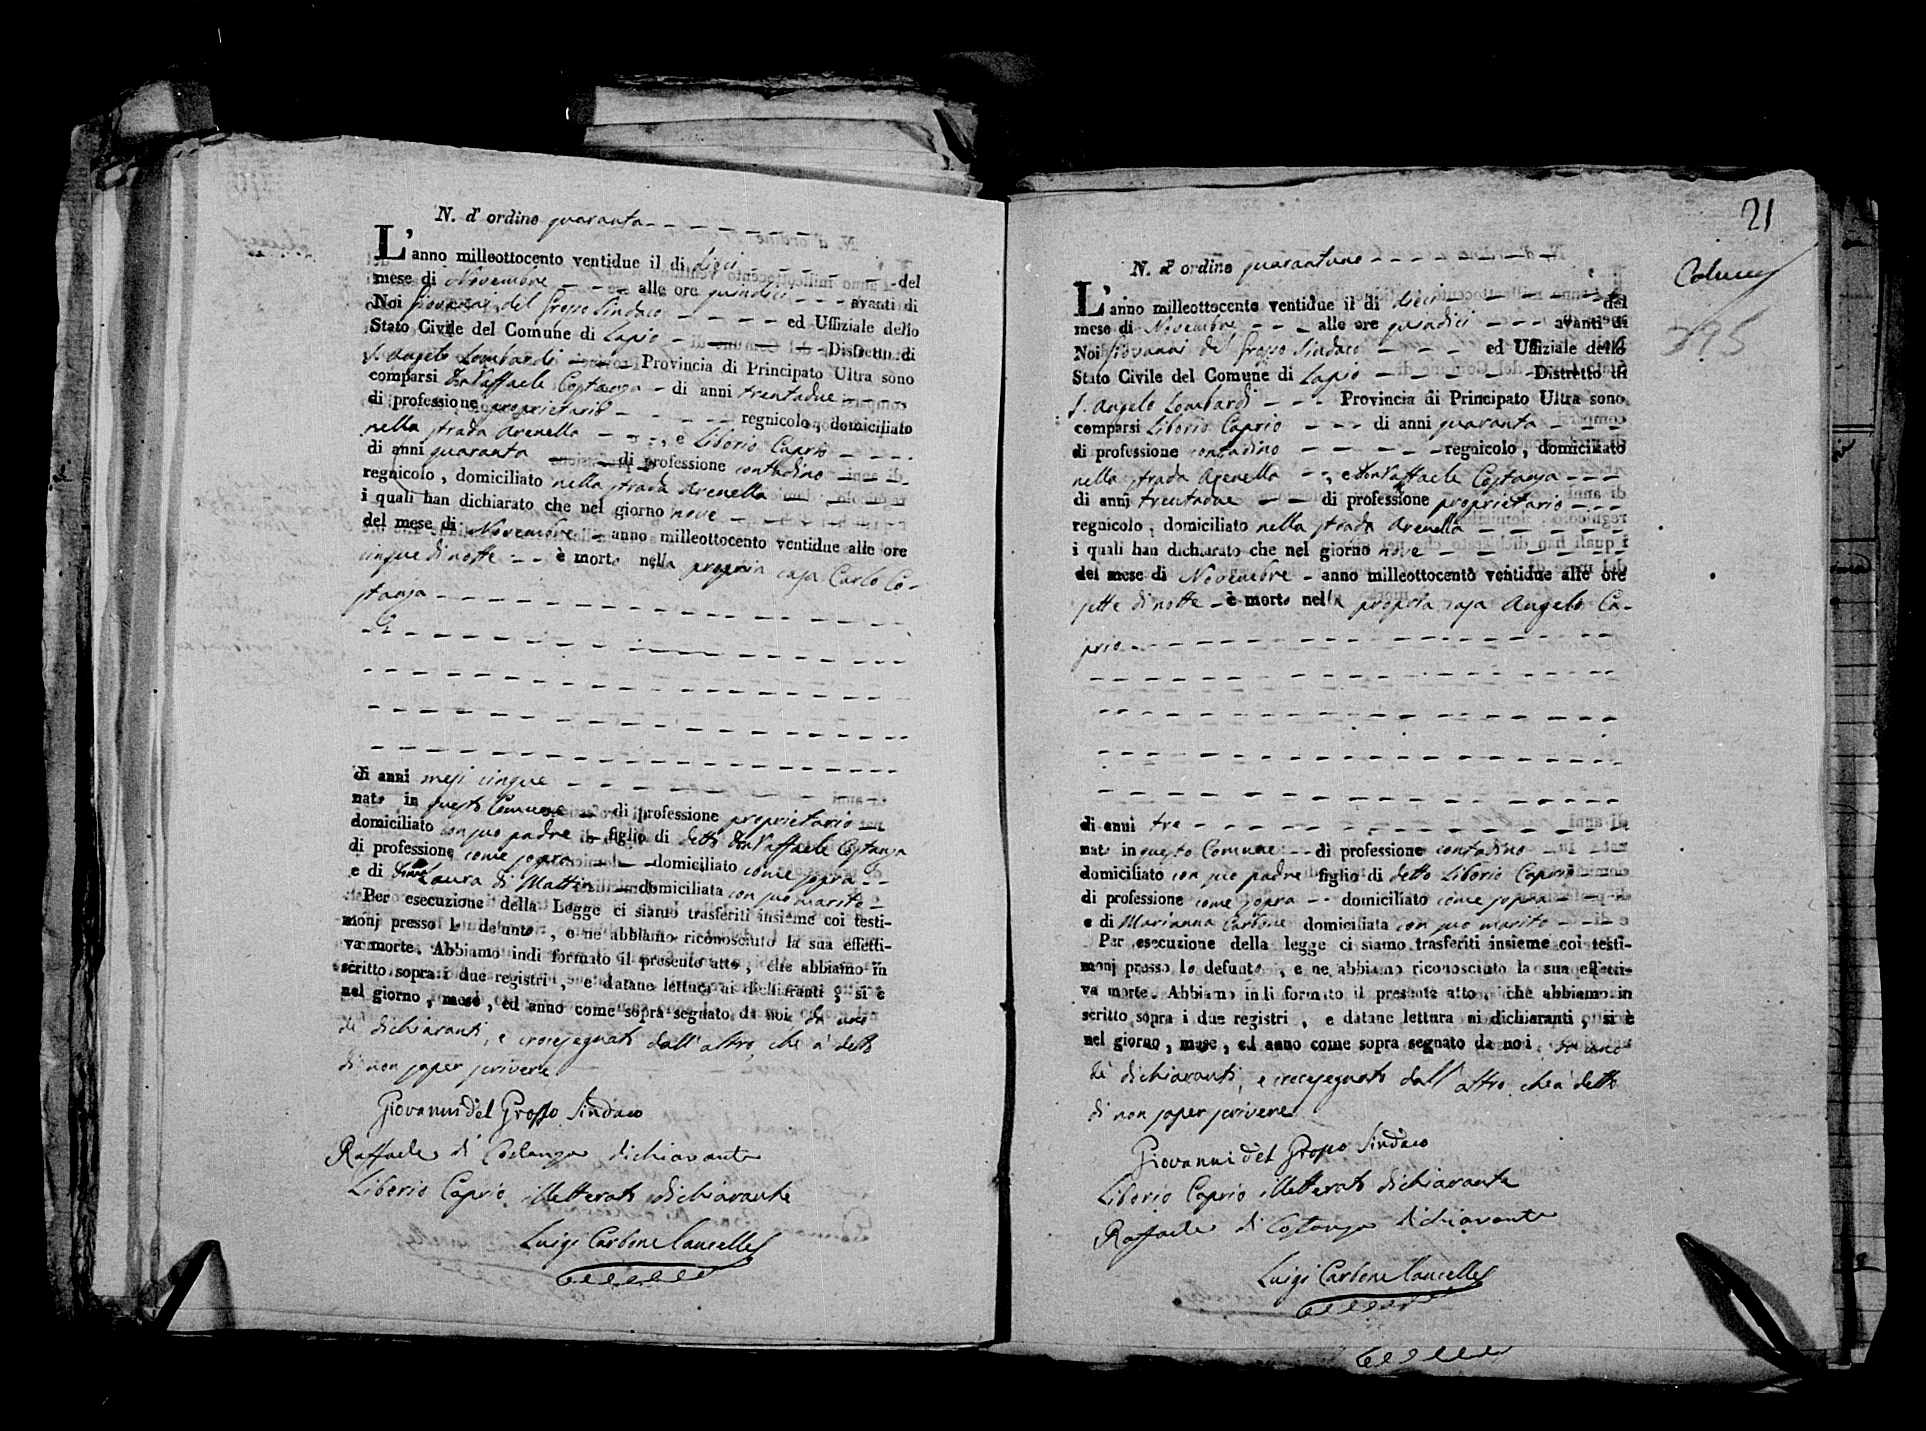 N. d' ordine quaranta
L'anno milleottocento ventidue il dì dieci
del
mese di Novembre alle ore quindici avanti di
Noi Giovanni del Grosso Sindaco ed Uffiziale dello
Stato Civile del Comune di Lapio Distretto di
S. Angelo Lombardi Provincia di Principato Ultra sono
comparsi Don Raffaele Costanza di anni trentadue
di professione proprietario regnicolo, domiciliato
nella strada Arenella, e Liborio Caprio
di anni quaranta di professione contadino
regnicolo, domiciliato nella strada Arenella
i quali han dichiarato che nel giorno nove
del mese di Novembre anno milleottocento ventidue alle ore
cinque di notte è morto nella propria casa Carlo Co-
stanza
di anni mesi cinque
nato in questo Comune di professione proprietario
domiciliato con suo padre figlio di detto Don Raffaele Costanza
di professione come sopra domiciliato come sopra
e di Laura di Mattia domiciliata con suo marito
Per esecuzione della Legge ci siamo trasferiti insieme coi testi-
monj presso lo defunto, e ne abbiamo riconosciuto la sua effetti-
va morte. Abbiamo indi formato il presente atto, che abbiamo in
scritto sopra i due registri, e datane lettura ai dichiaranti, si è
nel giorno, mese, ed anno come sopra segnato da noi da uno
de' dichiaranti, e crocesegnato dall'altro, che à detto
di non saper scrivere
Giovanni del Grosso Sindaco
Raffaele di Costanza dichiarante
Liborio Caprio illetterato dichiarante
Luigi Carbone Cancelle
21
N. d' ordine quarantuno
L'anno milleottocento ventidue il dì dieci del
mese di Novembre alle ore quindici avanti di
395
Noi Giovanni del Grosso Sindaco ed Uffiziale dello
Stato Civile del Comune di Lapio Distretto di
S. Angelo Lombardi Provincia di Principato Ultra sono
comparsi Liborio Caprio di anni quaranta
di professione contadino regnicolo, domiciliato
nella strada Arenella, e Don Raffaele Costanza
di anni trentadue di professione proprietario
regnicolo, domiciliato nella strada Arenella
i quali han dichiarato che nel giorno nove
del mese di Novembre anno milleottocento ventidue alle ore
sette di notte è morto nella propria casa Angelo Ca-
prio
di anni tre
nato in questo Comune di professione contadino
domiciliato con suo padre figlio di detto Liborio Caprio
di professione come sopra domiciliato come sopra
e di Marianna Carbone domiciliata con suo marito
Per esecuzione della legge ci siamo trasferiti insieme coi testi-
monj presso lo defunto, e ne abbiamo riconosciuto la sua effetti-
va morte. Abbiamo indi formato il presente atto, che abbiamo in
scritto sopra i due registri, e datane lettura ai dichiaranti, si è
nel giorno, mese, ed anno come sopra segnato da noi, da uno
de' dichiaranti, e crocesegnato dall'altro che à detto
di non saper scrivere
Giovanni del Grosso Sindaco
Liborio Caprio illetterato dichiarante
Raffaele di Costanza dichiarante
Luigi Carbone Cancelle